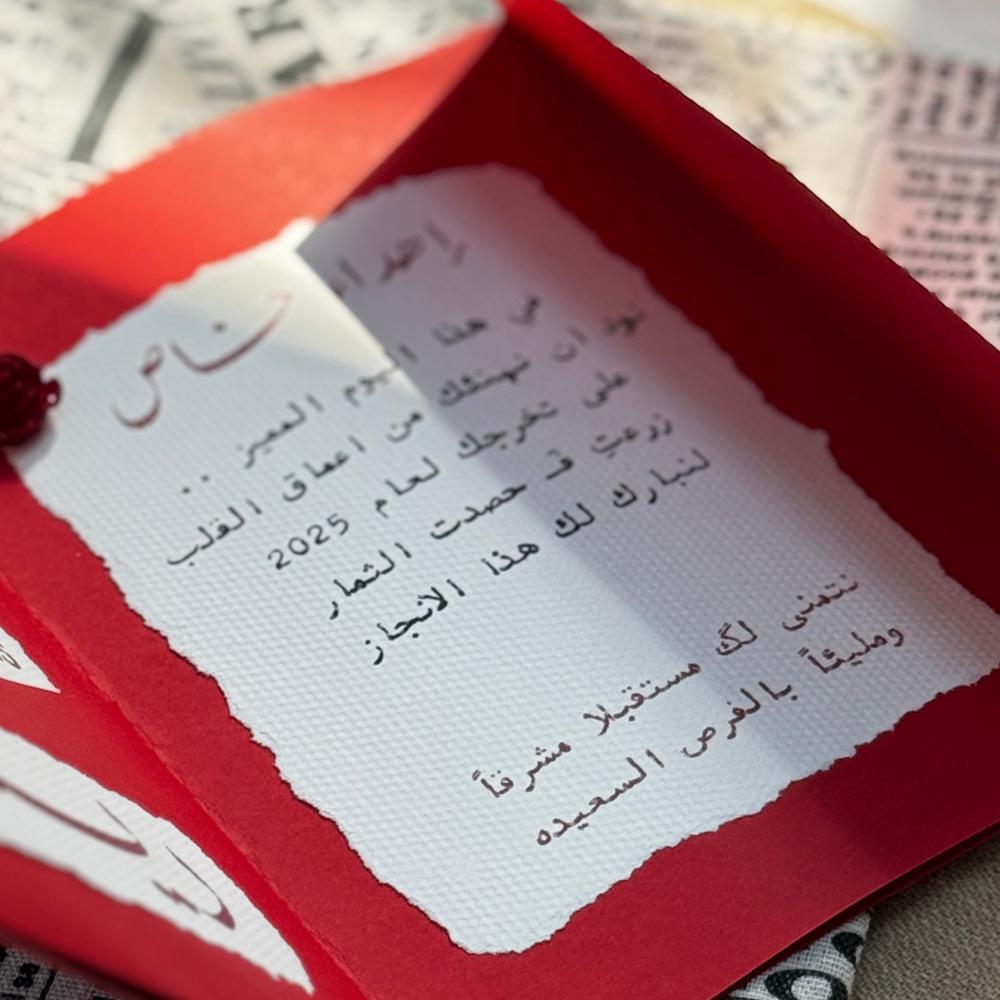 إهداء خاص
في هذا اليوم المميز ..
نود ان نهنئك من اعماق القلب
على تخرجك لعام 2025
زرعتِ فـ حصدت الثمار
لنبارك لك هذا الانجاز
نتمنى لگ مستقبلا مشرقاً
ومليئاً بالفرص السعيده